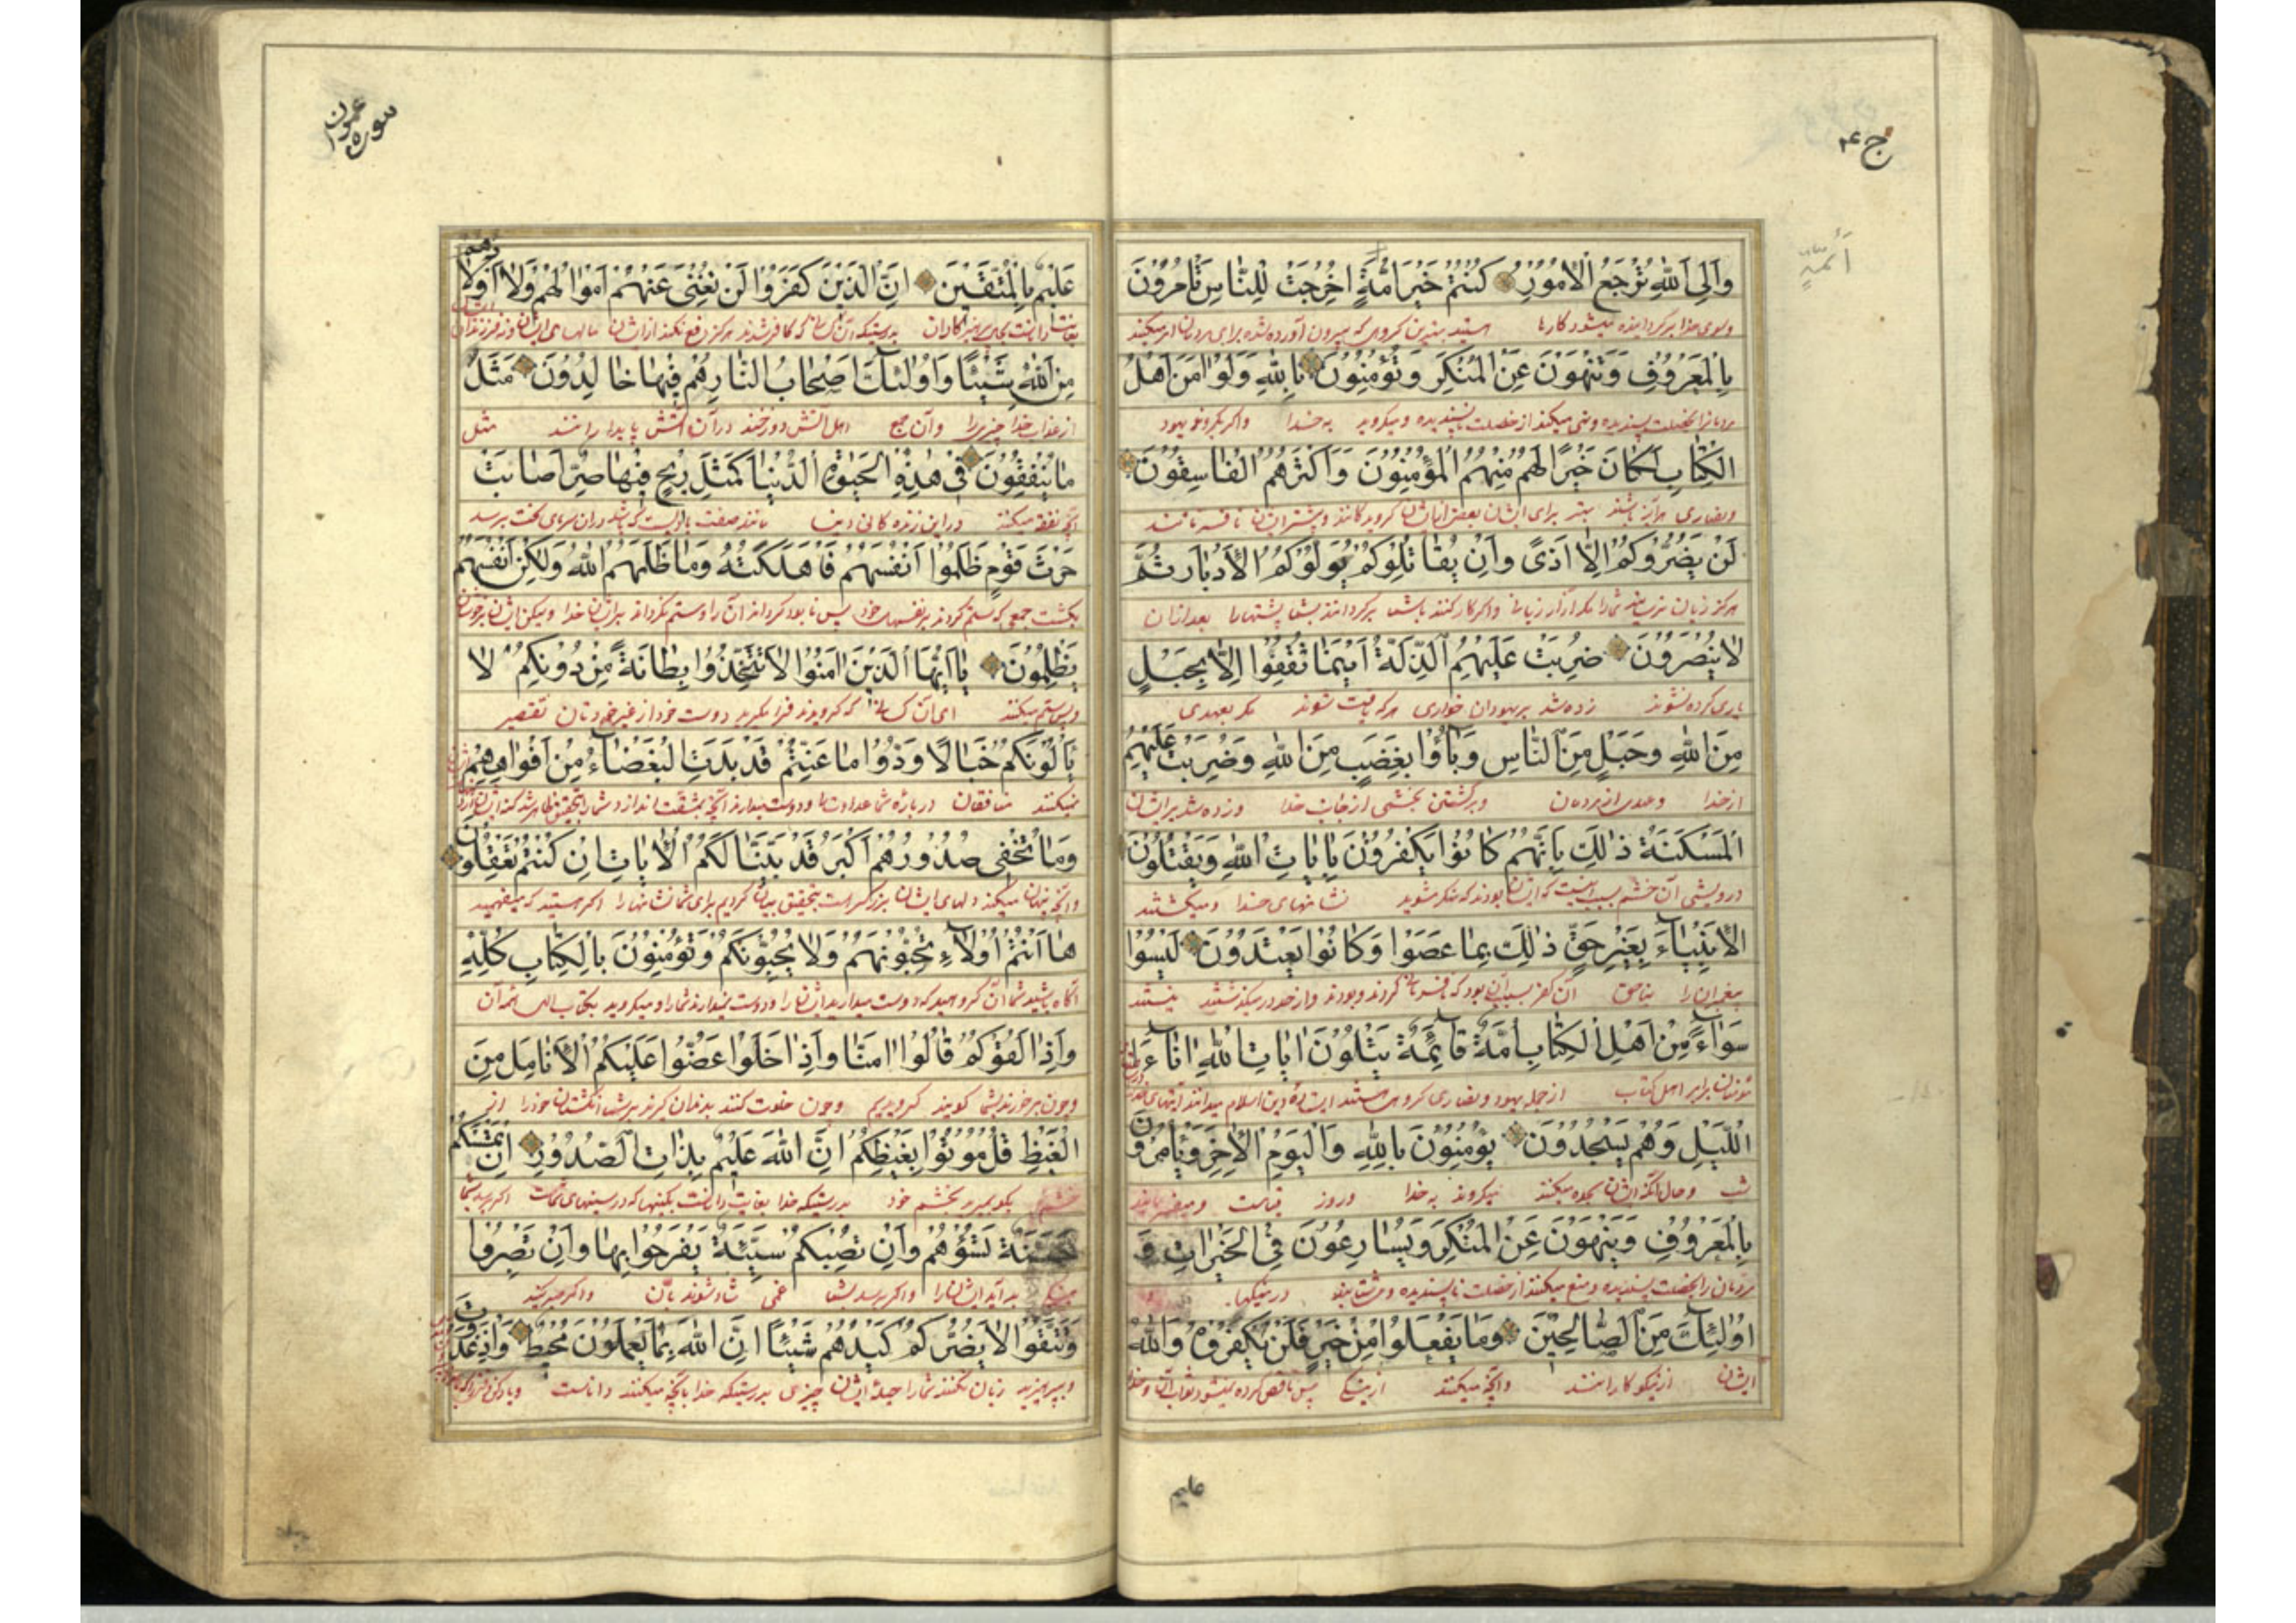 ج ۴
وَاِلَى اللهِ تُرْجَعُ الْاُمُورُ كُنْتُمْ خَيْرَ اُمَّةٍ اُخْرِجَتْ لِلنَّاسِ تَأْمُرُونَ
وبسوی خدا برگردانیده میشود کارها هستید بهترین گروهی که بیرون آورده شده برای مردمان امر میکنید
بِالْمَعْرُوفِ وَتَنْهَوْنَ عَنِ الْمُنْكَرِ وَتُؤْمِنُونَ بِاللهِ وَلَوْ اٰمَنَ اَهْلُ
مردمانرا بخصلت پسندیده ونهی میکنید از خصلت ناپسندیده ومیگروید به خدا واگر بگروند یهود
الْكِتَابِ لَكَانَ خَيْرًا لَهُمْ مِنْهُمُ الْمُؤْمِنُونَ وَاَكْثَرُهُمُ الْفَاسِقُونَ
ونصاری هرآینه باشد بهتر برای ایشان بعض ایشان گرویدگانند وبیشتر ایشان نافرمانند
لَنْ يَضُرُّوكُمْ اِلَّا اَذًى وَاِنْ يُقَاتِلُوكُمْ يُوَلُّوكُمُ الْاَدْبَارَ ثُمَّ
هرگز زیان نرسانند شمارا مگر آزار زبانی واگر کارزار کنند باشما برگردانند بشما پشتهارا بعد ازان
لَا يُنْصَرُونَ ضُرِبَتْ عَلَيْهِمُ الذِّلَّةُ اَيْنَمَا ثُقِفُوا اِلَّا بِحَبْلٍ
یاری کرده نشوند زده شد بر یهودان خواری هرکه یافت شوند مگر بعهدی
مِنَ اللهِ وَحَبْلٍ مِنَ النَّاسِ وَبَاؤُا بِغَضَبٍ مِنَ اللهِ وَضُرِبَتْ عَلَيْهِمُ
از خدا وعهدی از مردمان وبرگشتن بخشمی از جانب خدا وزده شد بر ایشان
الْمَسْكَنَةُ ذٰلِكَ بِاَنَّهُمْ كَانُوا يَكْفُرُونَ بِاٰيَاتِ اللهِ وَيَقْتُلُونَ
درویشی آن خشم بسبب اینست که ایشان بودند که منکر میشوند نشانهای خدا ومیکشتند
الْاَنْبِيَاءَ بِغَيْرِ حَقٍّ ذٰلِكَ بِمَا عَصَوْا وَكَانُوا يَعْتَدُونَ لَيْسُوا
پیغمبران را بناحق آن کفر بسبب آن بود که نافرمانی کردند وبودند واز حد درمیگذشتند نیستند
سَوَاءً مِنْ اَهْلِ الْكِتَابِ اُمَّةٌ قَائِمَةٌ يَتْلُونَ اٰيَاتِ اللهِ اٰنَاءَ
مؤمنان برابر اهل کتاب از جمله یهود ونصاری گروهی هستند
الَّيْلِ وَهُمْ يَسْجُدُونَ يُؤْمِنُونَ بِاللهِ وَالْيَوْمِ الْاٰخِرِ وَيَأْمُرُونَ
شب وحال آنکه ایشان سجده میکنند میگروند به خدا وروز قیامت ومیفرمایند
بِالْمَعْرُوفِ وَيَنْهَوْنَ عَنِ الْمُنْكَرِ وَيُسَارِعُونَ فِي الْخَيْرَاتِ وَ
مردمان را بخصلت پسندیده ومنع میکنند از خصلت ناپسندیده ومیشتابند در نیکیها
اُولٰئِكَ مِنَ الصَّالِحِينَ وَمَا يَفْعَلُوا مِنْ خَيْرٍ فَلَنْ يُكْفَرُوهُ وَاللهُ
ایشان از نیکوکارانند وآنچه میکنند از نیکی پس ناقص کرده نمیشود ثواب آن وخدا
علیم
سوره عمران
عَلِيمٌ بِالْمُتَّقِينَ اِنَّ الَّذِينَ كَفَرُوا لَنْ تُغْنِيَ عَنْهُمْ اَمْوَالُهُمْ وَلَا اَوْلَادُهُمْ
بغایت داناست بحال پرهیزکاران بدرستیکه آن کسانی که کافر شدند هرگز دفع نکند از ایشان مالهای ایشان ونه فرزندان ایشان
مِنَ اللهِ شَيْئًا وَاُولٰئِكَ اَصْحَابُ النَّارِ هُمْ فِيهَا خَالِدُونَ مَثَلُ
از عذاب خدا چیزی را وآن جمع اهل آتش دوزخند در آن آتش پایدارانند مثل
مَا يُنْفِقُونَ فِي هٰذِهِ الْحَيٰوةِ الدُّنْيَا كَمَثَلِ رِيحٍ فِيهَا صِرٌّ اَصَابَتْ
آنچه نفقه میکنند در این زندگانی دنیا مانند صفت بادیست که باشد در آن سرمای سخت برسد
حَرْثَ قَوْمٍ ظَلَمُوا اَنْفُسَهُمْ فَاَهْلَكَتْهُ وَمَا ظَلَمَهُمُ اللهُ وَلٰكِنْ اَنْفُسَهُمْ
بکشت جمعی که ستم کردند بر نفسهای خود پس نابود گرداند آن را وستم نکرد بر ایشان خدا ولیکن ایشان بر خودشان
يَظْلِمُونَ يَا اَيُّهَا الَّذِينَ اٰمَنُوا لَا تَتَّخِذُوا بِطَانَةً مِنْ دُونِكُمْ لَا
ستم میکنند ای آن کسانی که گرویدند فرا مگیرید دوست خود از غیر خودتان تقصیر
يَأْلُونَكُمْ خَبَالًا وَدُّوا مَا عَنِتُّمْ قَدْ بَدَتِ الْبَغْضَاءُ مِنْ اَفْوَاهِهِمْ
نمیکنند منافقان درباره شما
وَمَا تُخْفِي صُدُورُهُمْ اَكْبَرُ قَدْ بَيَّنَّا لَكُمُ الْاٰيَاتِ اِنْ كُنْتُمْ تَعْقِلُونَ
وآنچه پنهان میکند دلهای ایشان بزرگتر است بتحقیق بیان کردیم برای شما نشانها را اگر هستید که میفهمید
هَا اَنْتُمْ اُولَاءِ تُحِبُّونَهُمْ وَلَا يُحِبُّونَكُمْ وَتُؤْمِنُونَ بِالْكِتَابِ كُلِّهِ
آگاه باشید شما آن گروهید که دوست میدارید ایشان را ودوست نمیدارند شمارا ومیگروید بکتاب الهی همه آن
وَاِذَا لَقُوكُمْ قَالُوا اٰمَنَّا وَاِذَا خَلَوْا عَضُّوا عَلَيْكُمُ الْاَنَامِلَ مِنَ
وچون برخورند بشما گویند گرویدیم وچون خلوت کنند بدندان گیرند بر شما انگشتان خود را از
الْغَيْظِ قُلْ مُوتُوا بِغَيْظِكُمْ اِنَّ اللهَ عَلِيمٌ بِذَاتِ الصُّدُورِ اِنْ تَمْسَسْكُمْ
خشم بگو بمیرید بخشم خود بدرستیکه خدا بغایت داناست اگر برسد شما
حَسَنَةٌ تَسُؤْهُمْ وَاِنْ تُصِبْكُمْ سَيِّئَةٌ يَفْرَحُوا بِهَا وَاِنْ تَصْبِرُوا
بد آید ایشان را واگر برسد بشما غمی شاد شوند بآن واگر صبر کنید
وَتَتَّقُوا لَا يَضُرُّكُمْ كَيْدُهُمْ شَيْئًا اِنَّ اللهَ بِمَا يَعْمَلُونَ مُحِيطٌ وَاِذْ غَدَوْتَ
وبپرهیزید زیان نکند شمارا حیله ایشان چیزی بدرستیکه خدا بآنچه میکنند داناست